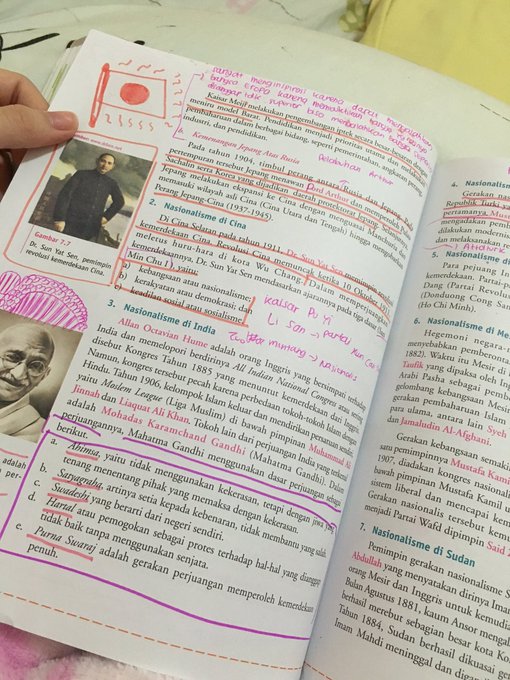 sangat menginspirasi karena dapat mengalahkan
bangsa Eropa karena mematahkan
dianggap superior
Kaisar Meiji melakukan pengembangan iptek secara besar-besaran dengan
meniru model Barat. Pendidikan menjadi prioritas utama dan melakukan
pembaharuan dalam berbagai bidang, seperti pemerintahan, angkatan perang,
industri, dan pendidikan.
Pelabuhan Arthur
b. Kemenangan Jepang Atas Rusia
Pada tahun 1904, timbul perang antara Rusia dan Jepang. Pada
pertempuran tersebut Jepang menawan Port Arthur dan memperoleh Pulau
Sachalin serta Korea yang dijadikan daerah protektorat Jepang. Selanjutnya
Jepang melakukan ekspansi ke Cina dengan menguasai Manchuria,
memasuki wilayah asli Cina (Cina Utara dan Tengah) hingga mengobarkan
Perang Jepang-Cina (1937-1945).
Gambar 7.7
Dr. Sun Yat Sen, pemimpin
revolusi kemerdekaan Cina.
2. Nasionalisme di Cina
Di Cina Selatan pada tahun 1911, Dr. Sun Yat Sen memimpin revolusi
kemerdekaan Cina. Revolusi Cina memuncak ketika 10 Oktober 1911
meletus huru-hara di kota Wu Chang. Dalam memperjuangkan
kemerdekaannya, Dr. Sun Yat Sen mendasarkan ajarannya pada tiga dasar (San
Min Chu I), yaitu:
a) kebangsaan atau nasionalisme;
b) kerakyatan atau demokrasi; dan
c) keadilan sosial atau sosialisme.
Kaisar Pu Yi
Li San → partai
→ nasionalis
3. Nasionalisme di India
Allan Octavian Hume adalah orang Inggris yang bersimpati terhadap
India dan memelopori berdirinya All Indian National Congress atau sering
disebut Kongres Tahun 1885 yang menuntut kemerdekaan dari Inggris.
Namun, kongres tersebut pecah karena perbedaan tokoh-tokoh Islam dengan
Hindu. Tahun 1906, kelompok Islam keluar dan mendirikan persatuan sendiri,
yaitu Moslem League (Liga Muslim) di bawah pimpinan Muhammad Ali
Jinnah dan Liaquat Ali Khan. Tokoh lain dari perjuangan India yang terkenal
adalah Mohadas Karamchand Gandhi (Mahatma Gandhi). Dalam
perjuangannya, Mahatma Gandhi menggunakan dasar perjuangan sebagai
berikut.
a. Ahimsa, yaitu tidak menggunakan kekerasan, tetapi dengan jiwa yang
tenang menentang pihak yang memaksa dengan kekerasan.
b. Satyagraha, artinya setia kepada kebenaran, tidak membantu yang salah.
c. Swadeshi yang berarti dari negeri sendiri.
d. Hartal atau pemogokan sebagai protes terhadap hal-hal yang dianggap
tidak baik tanpa menggunakan senjata.
e. Purna Swaraj adalah gerakan perjuangan memperoleh kemerdekaan
penuh.
adalah
per-
4. Nasionalism
Gerakan nasi
Republik Turk
pertamanya, Mus
mengadakan pem
dilakukan modern
dan melaksanakan r
5. Nasionalisme di
Para pejuang In
kemerdekaan. Partai-p
Dang (Partai Revolus
(Donduong Cong San
(Ho Chi Minh).
6. Nasionalisme di Me
Hegemoni negara-
menyebabkan pemberonta
1882). Waktu itu Mesir di
Taufik yang dipaksa oleh I
Arabi Pasha sebagai pemb
gelombang kebangsaan Mesir
gerakan pembaharuan Islam
para ulama, antara lain Syek
dan Jamaludin Al-Afghani.
Gerakan kebangsaan semaki
sam pemimpinnya Mustafa Kami
1907, diadakan kongres nasional
bawah pimpinan Mustafa Kamil
sistem liberal dan mencapai kem
Gerakan nasionalis tersebut kem
menjadi Partai Wafd dipimpin Said
7. Nasionalisme di Sudan
Pemimpin gerakan nasionalisme S
Abdullah yang menyatakan dirinya Imar
orang Mesir dan Inggris untuk kemudia
Bulan Agustus 1881, kaum Ansor mengal
berhasil merebut sebagian besar kota Ko
Tahun 1884, Sudan berhasil dikuasai ger
Imam Mahdi meninggal dan digan